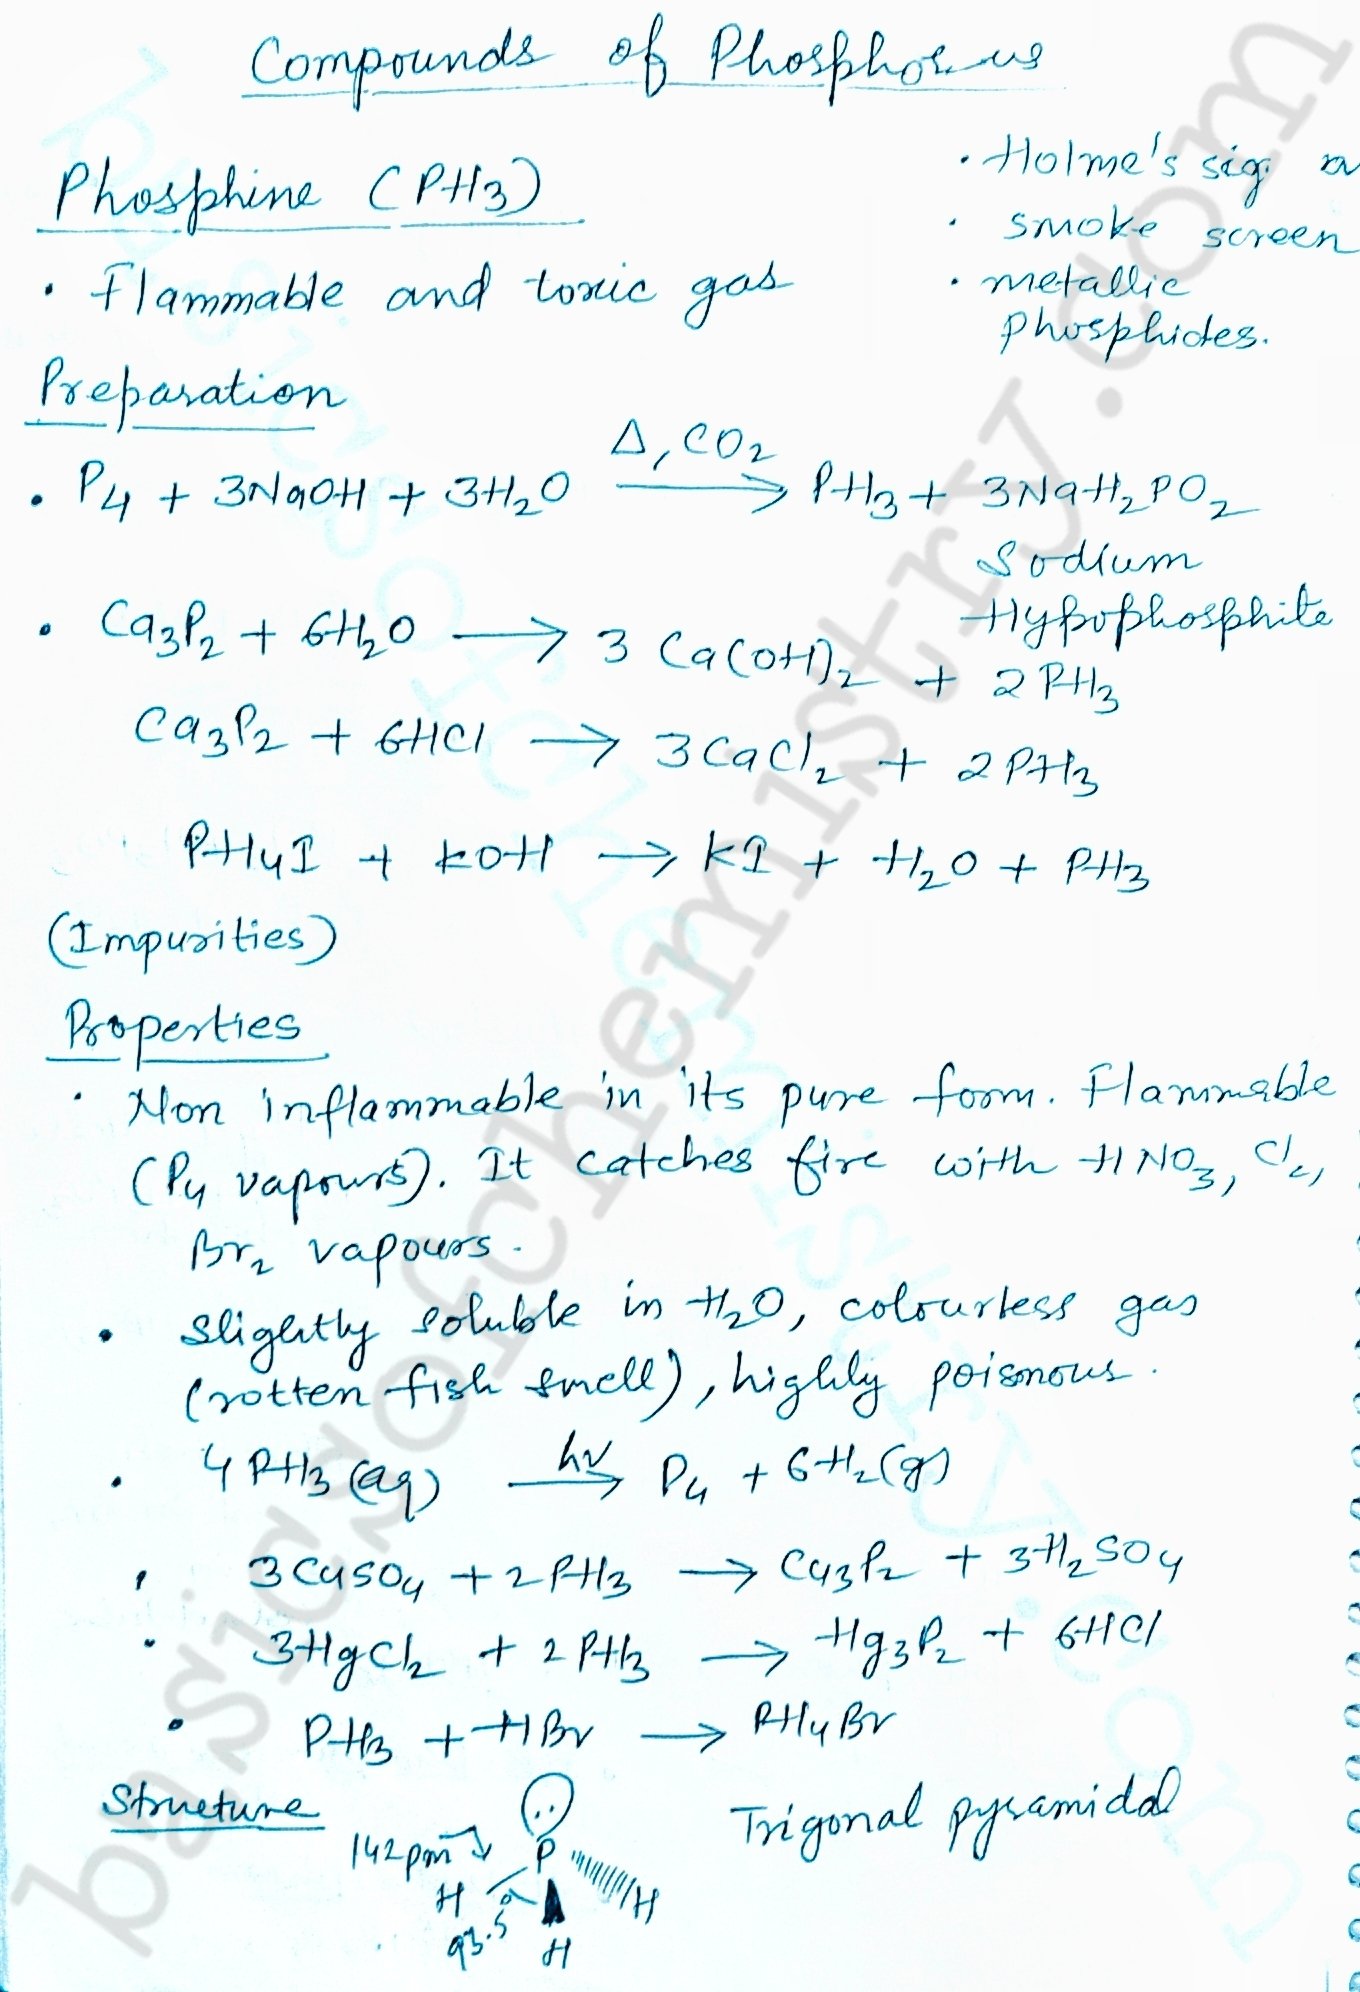 Compounds of Phosphorus
Phosphine (PH3)
• Flammable and toxic gas
• Holme's sig
• smoke screen
• metallic
phosphides.
Preparation
• P4 + 3NaOH + 3H2O —Δ, CO2→ PH3 + 3NaH2PO2
Sodium
Hypophosphite
• Ca3P2 + 6H2O → 3 Ca(OH)2 + 2PH3
Ca3P2 + 6HCl → 3CaCl2 + 2PH3
PH4I + KOH → KI + H2O + PH3
(Impurities)
Properties
• Non inflammable in its pure form. Flammable
(P4 vapours). It catches fire with HNO3, Cl2,
Br2 vapours.
• Slightly soluble in H2O, colourless gas
(rotten fish smell), highly poisnous.
• 4PH3(aq) —hν→ P4 + 6H2(g)
• 3CuSO4 + 2PH3 → Cu3P2 + 3H2SO4
• 3HgCl2 + 2PH3 → Hg3P2 + 6HCl
• PH3 + HBr → PH4Br
Structure
Trigonal pyramidal
142pm
P
H
H
93.5
H
basicsofchemistry.com
basicsofchemistry.com